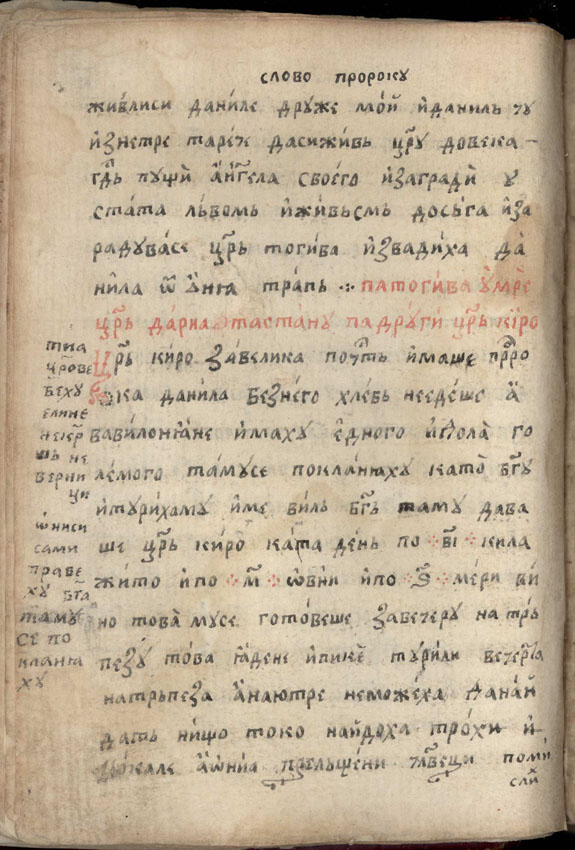 слово пророку
живлиси даниле друже мой и данилъ ту
изнетре тарече дасиживь цр҃у довека
гд҃ь пущи аг҃гела своего изагради у
стата львомъ иживьсмъ досьга иза
радувасе цр҃ь тогива извадиха да
нила ѿ онїа трапь ⁘ патогива умре
цр҃ь дариа тастану падруги цр҃ь киро
цр҃ь киро завелика почть имаше прⷪ҇ро
ка данила безнего хлебь неедеше а
вавилонꙗне имаху едного идола го
лемого тамусе покланꙗху като бг҃у
итурихаму име виль бг҃ь таму дава
ше цр҃ь киро ката день по ві кила
жито ипо м҃ ѡвни ипо ѕ҃ мери ви
но това мусе готовеше завечеру на трь
пезу това ꙗдене ипикѐ турили вечерьта
натрьпеза анаютре неможеха данай
дать нищо токо найдоха трохи и
кокале аѡниа прельщени члвеци поми
сли
тиа
цр҃ове
беху
елине
некр҃
щь не
верни
ци
ѡниси
сами
праве
ху бг҃а
таму
се по
кланꙗ
ху